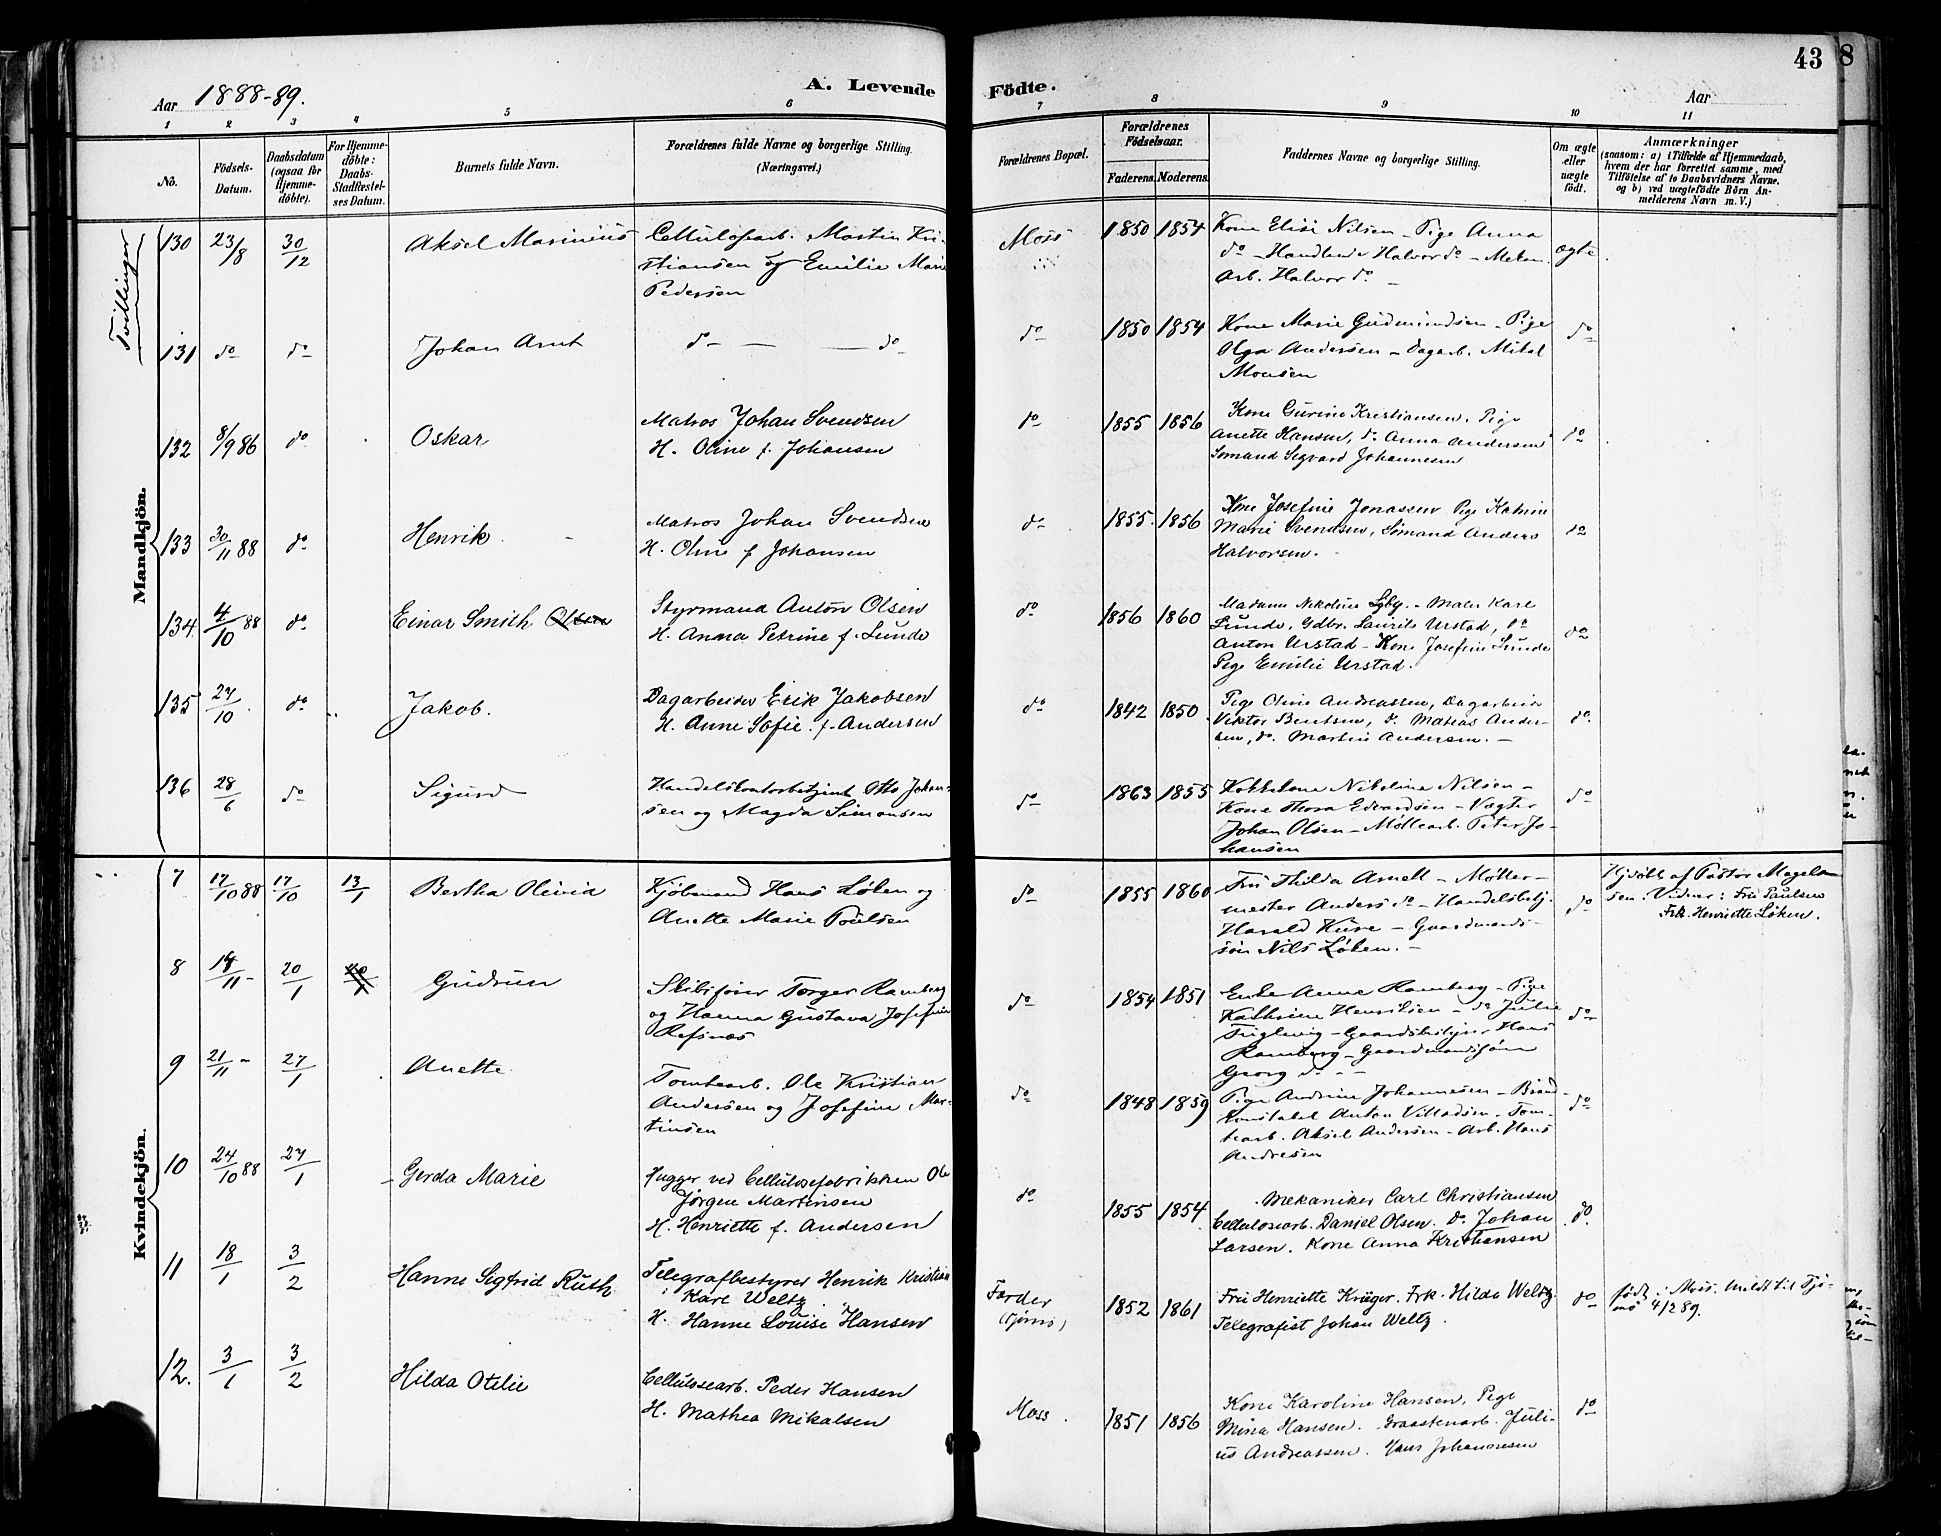 43
8
Aar 1888-89.
A. Levende
Födte.
Aar
1 2 3 4 5 6 7 8 9 10 11
No.
Födsels-
Datum.
Daabsdatum
(ogsaa for
Hjemme-
döbte).
For Hjemme-
döbte:
Daabs-
Stadfæstel-
ses Datum.
Barnets fulde Navn.
Forældrenes fulde Navne og borgerlige Stilling.
(Næringsvei.)
Forældrenes Bopæl.
Forældrenes
Födselsaar.
Faderens. Moderens.
Faddernes Navne og borgerlige Stilling.
Om ægte
eller
uægte
födt.
Anmærkninger
(saasom: a) i Tilfælde af Hjemmedaab,
hvem der har forrettet samme, med
Tilföielse af to Daabsvidners Navne,
og b) ved uægtefödte Börn An-
melderens Navn m. V.)
Tvillinger
Mandkjön.
130 23/8 30/12 Aksel Marinius
Cellulosearb. Martin Kri-
stiansen og Emilie Marie
Pedersen
Moss 1850 1854
Kone Elise Nilsen - Pige Anna
do - Handlende Halvor do - Mekan.
Arb. Halvor do -
ægte
131 do do Johan Arnt
do - - - do
do 1850 1854
Kone Marie Gudmundsen - Pige
Olga Andersen - Dagarb. Mikal
Monsen
do
132 8/9 86 do Oskar
Matros Johan Svendsen
H. Oline f. Johansen
do 1855 1856
Kone Gurine Kristiansen, Pige
Anette Hansen, do Anna Andersen
Sömand Sigvard Johannesen
do
133 30/11 88 do Henrik
Matros Johan Svendsen
H. Oline f Johansen
do 1855 1856
Kone Josefine Jonassen Pige Katrine
Marie Svendsen, Sömand Anders
Halvorsen.
do
134. 4/10 88 do Einar Smith Olsen
Styrmand Anton Olsen
H. Anna Petrine f. Lunde
do 1856 1860
Madame Nikoline Lyby. - Maler Karl
Lunde, Gdbr. Laurits Urstad, do
Anton Urstad - Kone Josefine Lunde
Pige Emilie Urstad.
do
135 27/10 do Jakob.
Dagarbeider Erik Jakobsen
H. Anne Sofie f. Andersen
do 1842 1850
Pige Oline Andreassen, Dagarbeider
Viktor Bentsen, do. Matias Ander-
sen, do. Martin Andersen. -
do.
136 28/6 do Sigurd
Handelskontorbetjent Otto Johan-
sen og Magda Simonsen
do 1863 1855
Nikoline Nilsen -
Kone Thora Edvardsen - Vægter
Johan Olsen - Möllearb. Peter Jo-
hansen
do
Kvindekjön.
7 17/10 88 17/10 13/1 Bertha Olivia
Kjöbmand Hans Löken og
Anette Marie Poulsen
do 1855 1860
Fru Thilda Arnell - Möller-
mester Anders do - Handelsbetj.
Harald Kure - Gaardmands-
sön Nils Löken. -
do
Hjdöbt af Pastor Magels-
sen. Vidner: Fru Paulsen
Frk. Henriette Löken.
8 19/11 - 20/1 Gudrun
Skibsförer Torger Ramberg
og Hanna Gustava Josefine
Refsnæs
do 1854 1851
Enke Anne Ramberg - Pige
Kathrine Henriksen - do Julie
- Gaardbestyrer Hans
Ramberg - Gaardmandssön
Georg do - -
do
9 21/11 - 27/1 Anette
Tomtearb. Ole Kristian
Andersen og Josefine Mar-
tinsen
do 1848 1859
Pige Andrine Johannesen - Brand-
konstabel Anton Villadsen - Tom-
tearb. Aksel Andersen - Arb. Hans
Andresen
do
10 24/10 88 27/1 Gerda Marie
Hugger ved Cellulosefabrikken Ole
Jörgen Martinsen
H. Henriette f. Andersen
do 1855 1854
Mekaniker Carl Christiansen
Cellulosearb. Daniel Olsen. Do. Johan
Larsen. Kone Anna Kristiansen
do.
11 18/1 3/2 Hanne Sigfrid Ruth
Telegrafbestyrer Henrik Kristian
Karl Weltz
H. Hanne Louise Hansen
Færder
(Tjömö) 1852 1861
Fru Henriette Krüger. Frk. Hilda Weltz.
Telegrafist Johan Weltz.
do
födt i Moss. meldt til Tjö-
mö 4/2 89.
12. 3/1 3/2 Hilda Otilie
Cellulosearb. Peder Hansen
H. Mathea Mikalsen
Moss. 1851 1856
Kone Karoline Hansen, Pige
Mina Hansen. Graastenarb. Juli-
us Andreassen. Hans Johannesen
do